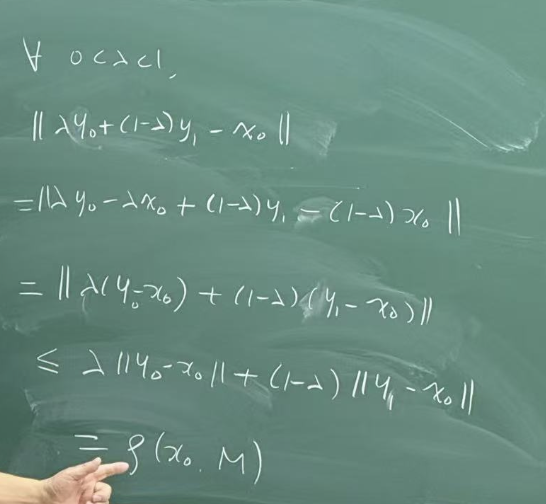 ∀ 0<λ<1,
‖λy₀+(1-λ)y₁ - x₀‖
=‖λy₀-λx₀ + (1-λ)y₁ - (1-λ)x₀‖
= ‖λ(y₀-x₀) + (1-λ)(y₁-x₀)‖
≤ λ‖y₀-x₀‖ + (1-λ)‖y₁-x₀‖
= ρ(x₀, M)